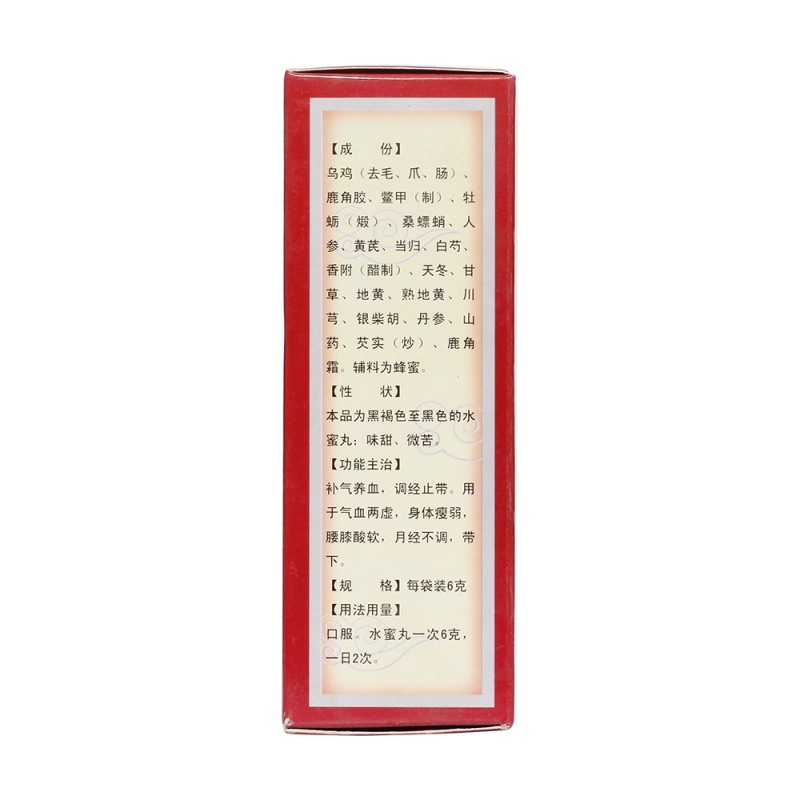 【成　份】
乌鸡（去毛、爪、肠）、
鹿角胶、鳖甲（制）、牡
蛎（煅）、桑螵蛸、人
参、黄芪、当归、白芍、
香附（醋制）、天冬、甘
草、地黄、熟地黄、川
芎、银柴胡、丹参、山
药、芡实（炒）、鹿角
霜。辅料为蜂蜜。
【性　状】
本品为黑褐色至黑色的水
蜜丸；味甜、微苦。
【功能主治】
补气养血，调经止带。用
于气血两虚，身体瘦弱，
腰膝酸软，月经不调，带
下。
【规　格】每袋装6克
【用法用量】
口服。水蜜丸一次6克，
一日2次。